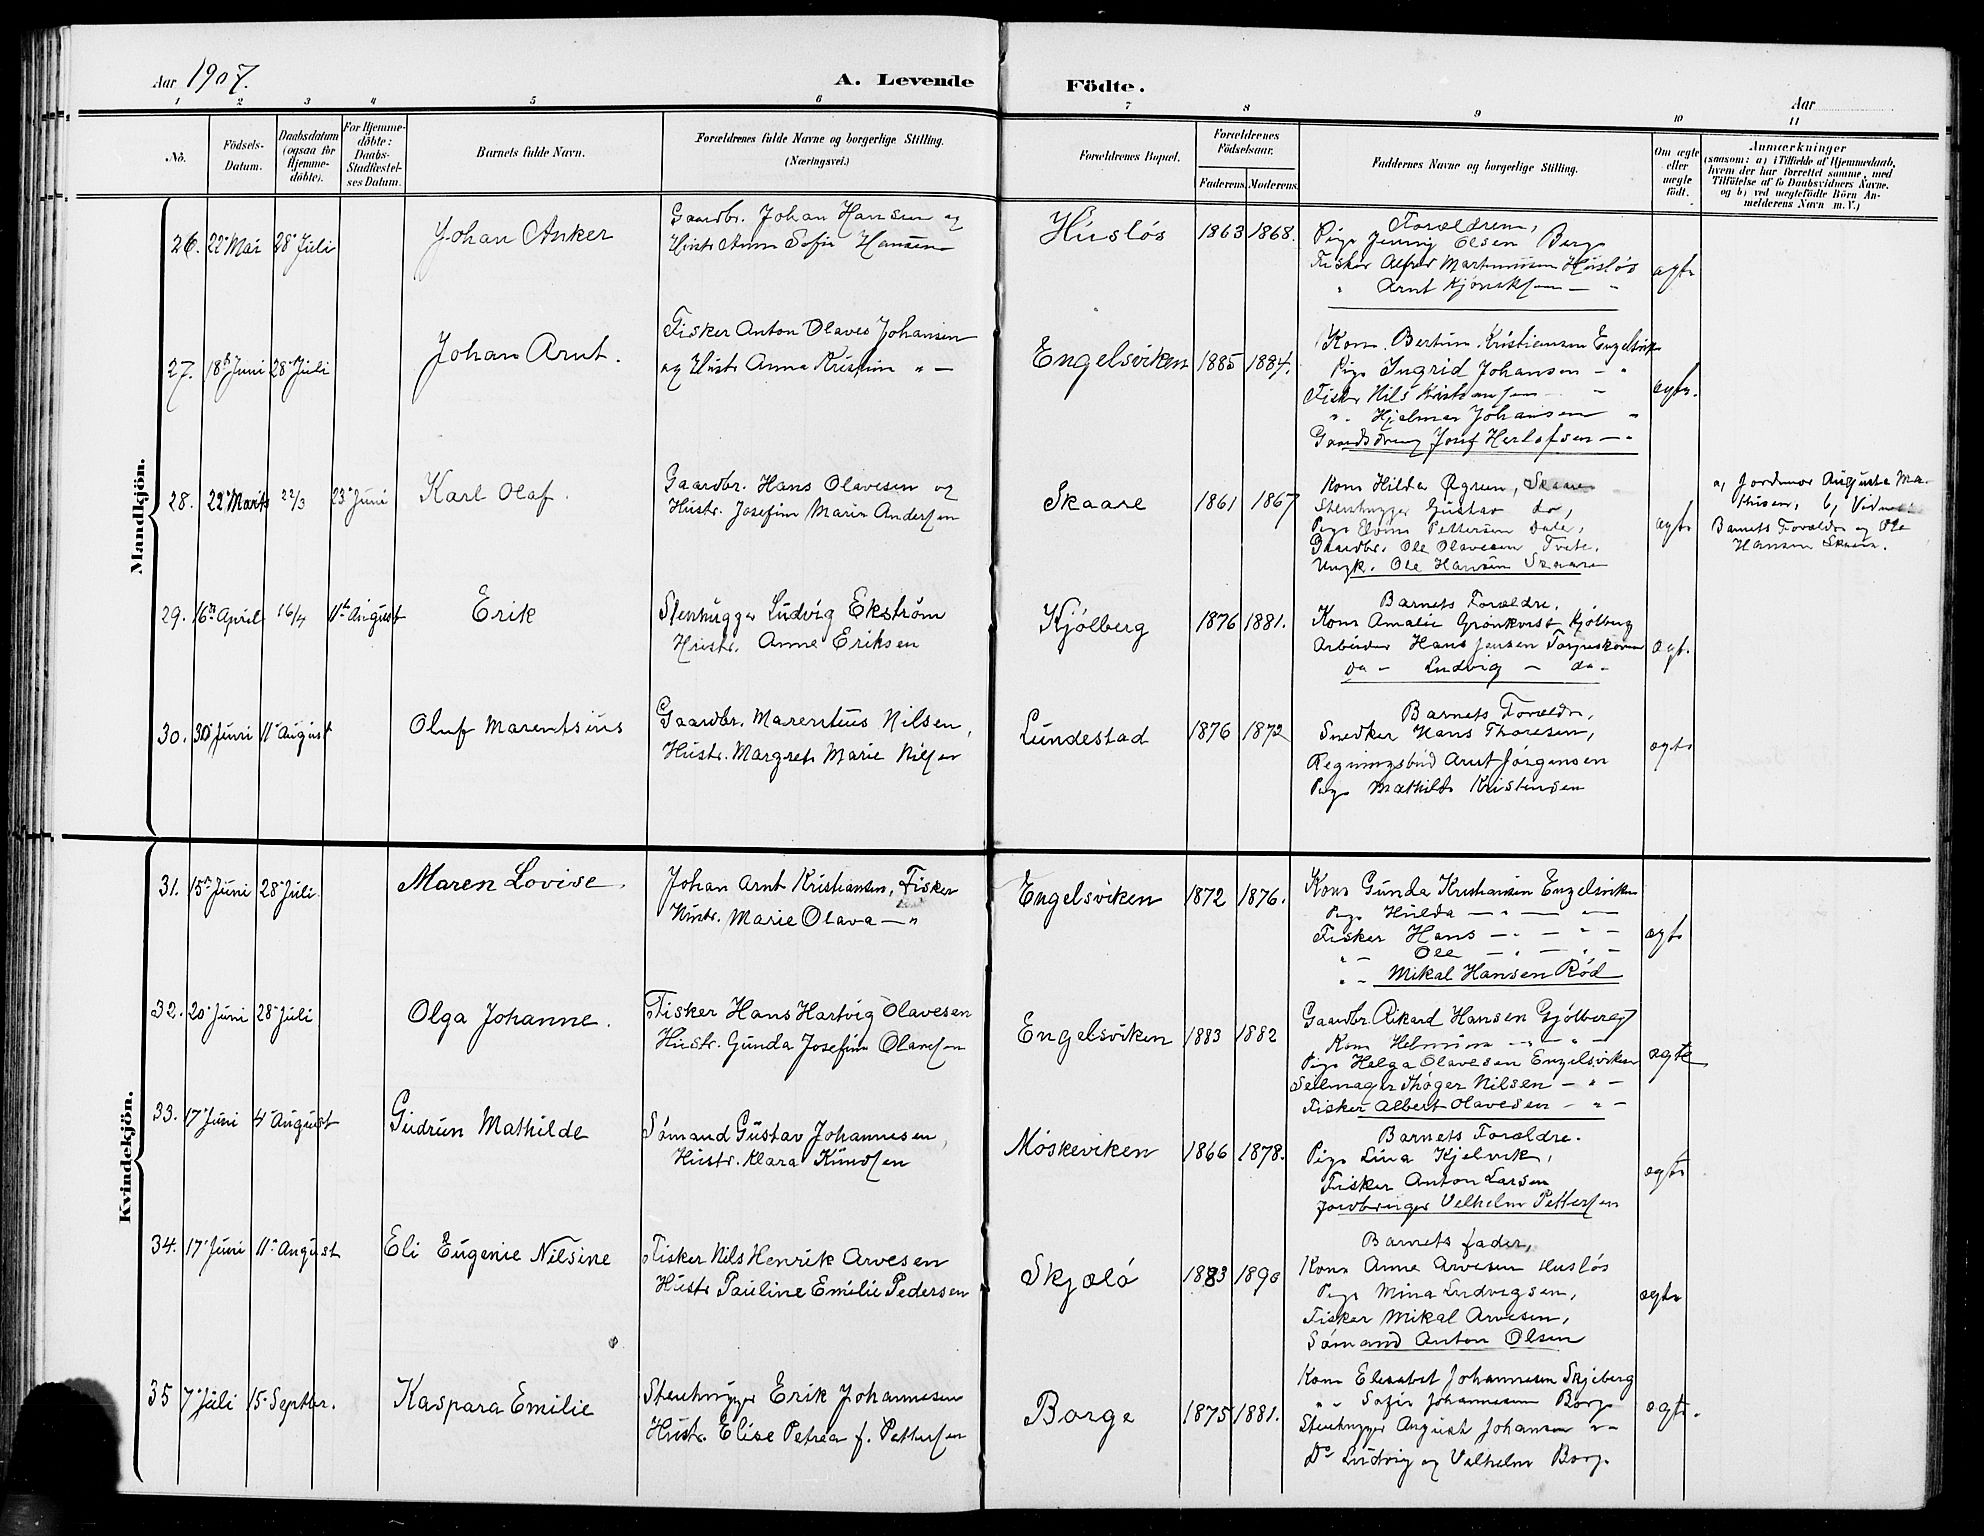 Aar 1907.
A. Levende Födte.
Aar
1 2 3 4 5 6 7 8 9 10 11
No.
Födsels-Datum.
Daabsdatum (ogsaa for Hjemme-döbte).
For Hjemme-döbte: Daabs-Stadfæstel-ses Datum.
Barnets fulde Navn.
Forældrenes fulde Navne og borgerlige Stilling.
(Næringsvei.)
Forældrenes Bopæl.
Forældrenes Födselsaar.
Faderens. Moderens.
Faddernes Navne og borgerlige Stilling.
Om ægte eller uægte födt.
Anmærkninger
(saasom: a) i Tilfælde af Hjemmedaab,
hvem der har forrettet samme, med
Tilföielse af to Daabsvidners Navne.
og b) ved uægtefödte Börn An-
melderens Navn m. V.)
Mandkjön.
26. 22de Mai 28de Juli Johan Anker
Gaardbr. Johan Hansen og
Hustr. Anna Sofie Hansen
Husløs 1863 1868.
Forældrene,
Pige Jenny Olsen Borge
Fisker Alfred Martinussen Husløs
" Arnt — "
ægte
27. 18de Juni 28de Juli Johan Arnt.
Fisker Anton Olaves Johansen
og Hustr. Anna Kristine " —
Engelsviken 1885 1884.
Kone Bertine Kristiansen Engelsvik
Pige Ingrid Johansen — "
Fisker Nils Kristiansen — "
" Hjelmer Johansen "
Gaardsdreng Josef Herlofsen — "
ægte.
28. 22de Marts 22/3 23de Juni Karl Olaf.
Gaardbr. Hans Olavesen og
Hustr. Josefine Marie Andersen
Skaare 1861 1867
Kone Hilda Skaare
Stenhugger Gustav do,
Pige Pettersen Dale,
Gaardbr. Ole Olavesen Tvete.
Ungk. Ole Hansen Skaare
ægte
a, Jordmor Augusta Ma-
thisen, b, Vidner
Barnets Forældre og Ole
Hansen Skaare.
29. 16de April 16/4 11te August Erik
Stenhugger Ludvig Ekstrøm
Hustr. Anne Eriksen
Kjølberg 1876 1881.
Barnets Forældre.
Kone Amalie Grønkvist Kjølberg
Arbeider Hans Jensen
do — Ludvig — do —
ægt.
30. 30te Juni 11te August Oluf Marentsius
Gaardbr. Marentius Nilsen,
Hustr. Margrete Marie Nilsen
Lundestad 1876 1872
Barnets Forældre,
Snedker Hans Thoresen,
Regningsbud Arnt Jørgensen
Pige Mathilde Kristensen
ægte
Kvindekjön.
31. 15de Juni 28de Juli Maren Lovise.
Johan Arnt Kristiansen, Fisker
Hustr. Marie Olava — "
Engelsviken 1872 1876.
Kone Gunda Kristiansen Engelsviken
Pige Hulda — " — " —
Fisker Hans — " — " —
" — Ole — " — " —
" — Mikal Hansen Rød
ægte
32. 20de Juni 28de Juli Olga Johanne.
Fisker Hans Hartvig Olavesen
Hustr. Gunda Josefine Olavesen
Engelsviken 1883 1882
Gaardbr. Rikard Hansen Gjølberg
Kone Helmine — " — " —
Pige Helga Olavesen Engelsviken
Seilmager Thøger Nilsen — " —
Fisker Albert Olavesen — " —
ægte
33. 17de Juni 4de August Gudrun Mathilde
Sømand Gustav Johannesen,
Hustr. Klara Knudsen
Møskeviken 1866 1878.
Barnets Forældre.
Pige Lina Kjelvik,
Fisker Anton Larsen
Jordbruger Velhelm Pettersen
ægte
34. 17de Juni 11te August Eli Eugenie Nilsine
Fisker Nils Henrik Arvesen
Hustr Pauline Emilie Pedersen
Skjælø 1883 1890
Barnets fader,
Kone Anne Arvesen Husløs
Pige Mina Ludvigsen,
Fisker Mikal Arvesen,
Sømand Anton Olsen
ægte
35 7de Juli 15de Septbr. Kaspara Emilie
Stenhugger Erik Johannesen
Hustr. Elise Petrea f. Pettersen
Borge 1875 1881.
Kone Elesabet Johannesen Skjeberg
" " Sofie Johannesen Borge
Stenhugger August Johansen " —
Do Ludvig og Velhelm Borge
ægte.